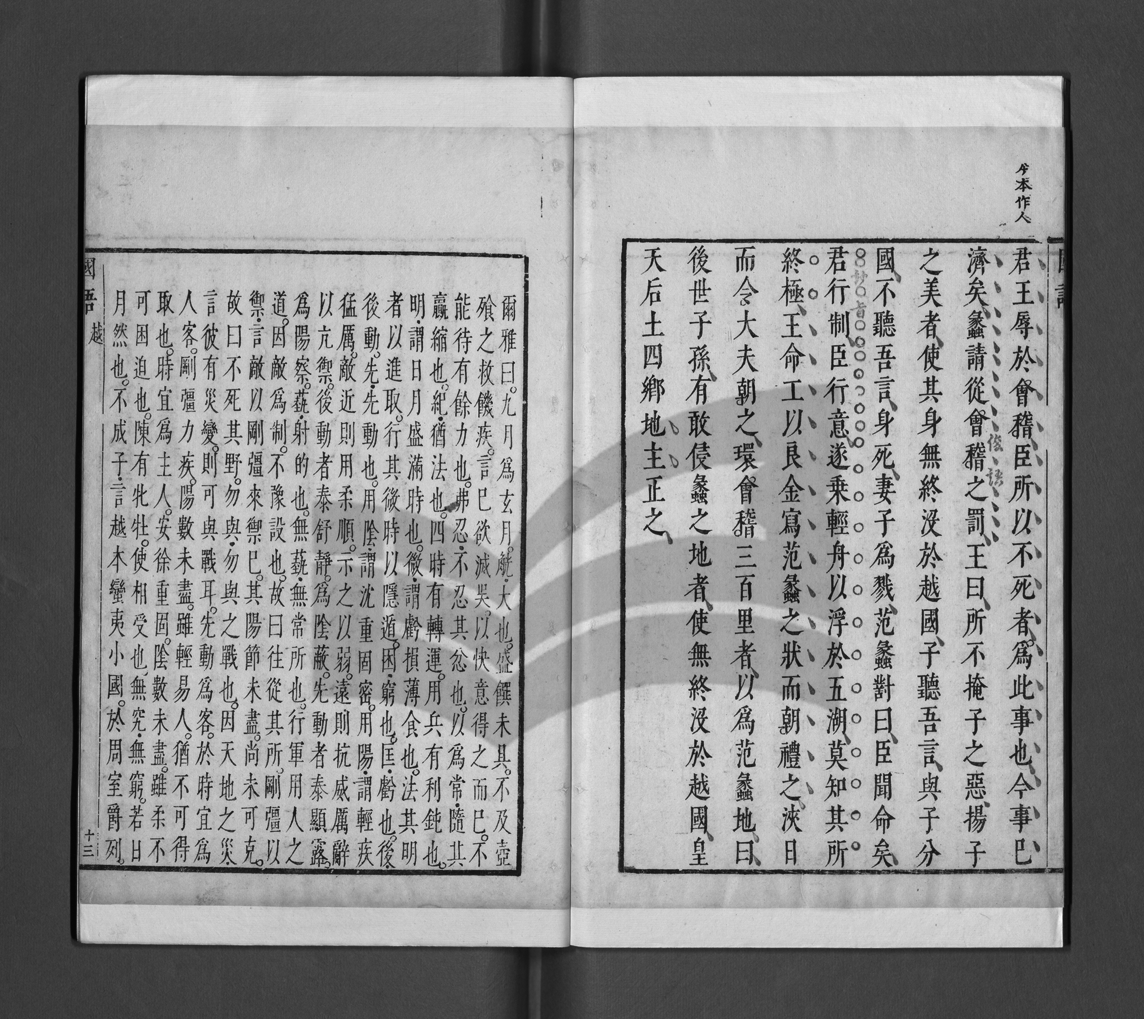 今本作人
國語
君王辱於會稽臣所以不死者爲此事也今事已
濟矣蠡請從會稽之罰王曰所不掩子之惡揚子
之美者使其身無終沒於越國子聽吾言與子分
國不聽吾言身死妻子爲戮范蠡對曰臣聞命矣
君行制臣行意遂乗輕舟以浮於五湖莫知其所
終極王命工以良金寫范蠡之狀而朝禮之浹日
而令大夫朝之環會稽三百里者以爲范蠡地曰
後世子孫有敢侵蠡之地者使無終沒於越國皇
天后土四鄉地主正之
爾雅曰。九月爲玄月。觥·大也。盛饌未具。不及壺
飱之救饑疾。言已欲滅吳。以快意得之而已。不
能待有餘力也。弗忍·不忍其忿也。以爲常·隨其
贏縮也。紀·猶法也。四時有轉運。用兵有利鈍也。
明·謂日月盛滿時也。微·謂虧損薄食也。法其明
者以進取。行其微時以隱遁。困·窮也。匡·虧也。後·
後動。先·先動也。用陰·謂沈重固密。用陽·謂輕疾
猛厲。敵近則用柔順。示之以弱。遠則抗威厲辭
以亢禦。後動者泰舒靜。爲陰蔽。先動者泰顯露。
爲陽察。蓺·射的也。無蓺·無常所也。行軍用人之
道。因敵爲制。不豫設也。故曰往從其所。剛彊以
禦·言敵以剛彊來禦己。其陽節未盡。尚未可克。
故曰不死其野。勿與·勿與之戰也。因天地之災
言彼有災變。則可與戰耳。先動爲客。於時宜爲
人客。剛彊力疾。陽數未盡。雖輕易人。猶不可得
取也。時宜爲主人。安徐重固。陰數未盡。雖柔不
可困迫也。陳有牝牡。使相受也。無究·無窮。若日
月然也。不成子·言越本蠻夷小國。於周室爵列。
國語
越
十三